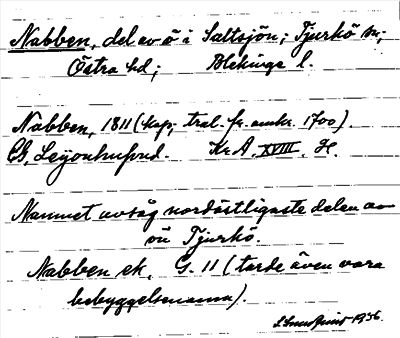 Nabben, del av ö i Saltsjön; Tjurkö sn;
Östra hd; Blekinge l.
Nabben, 1811 (kop; tral. fr. omkr. 1700).
CG. Leijonhufvud. Kr.A. XVIII. H.
Namnet avsåg nordöstligaste delen av
ön Tjurkö.
Nabben ek. G. 11 (torde även vara
bebyggelsenamn).
1936.